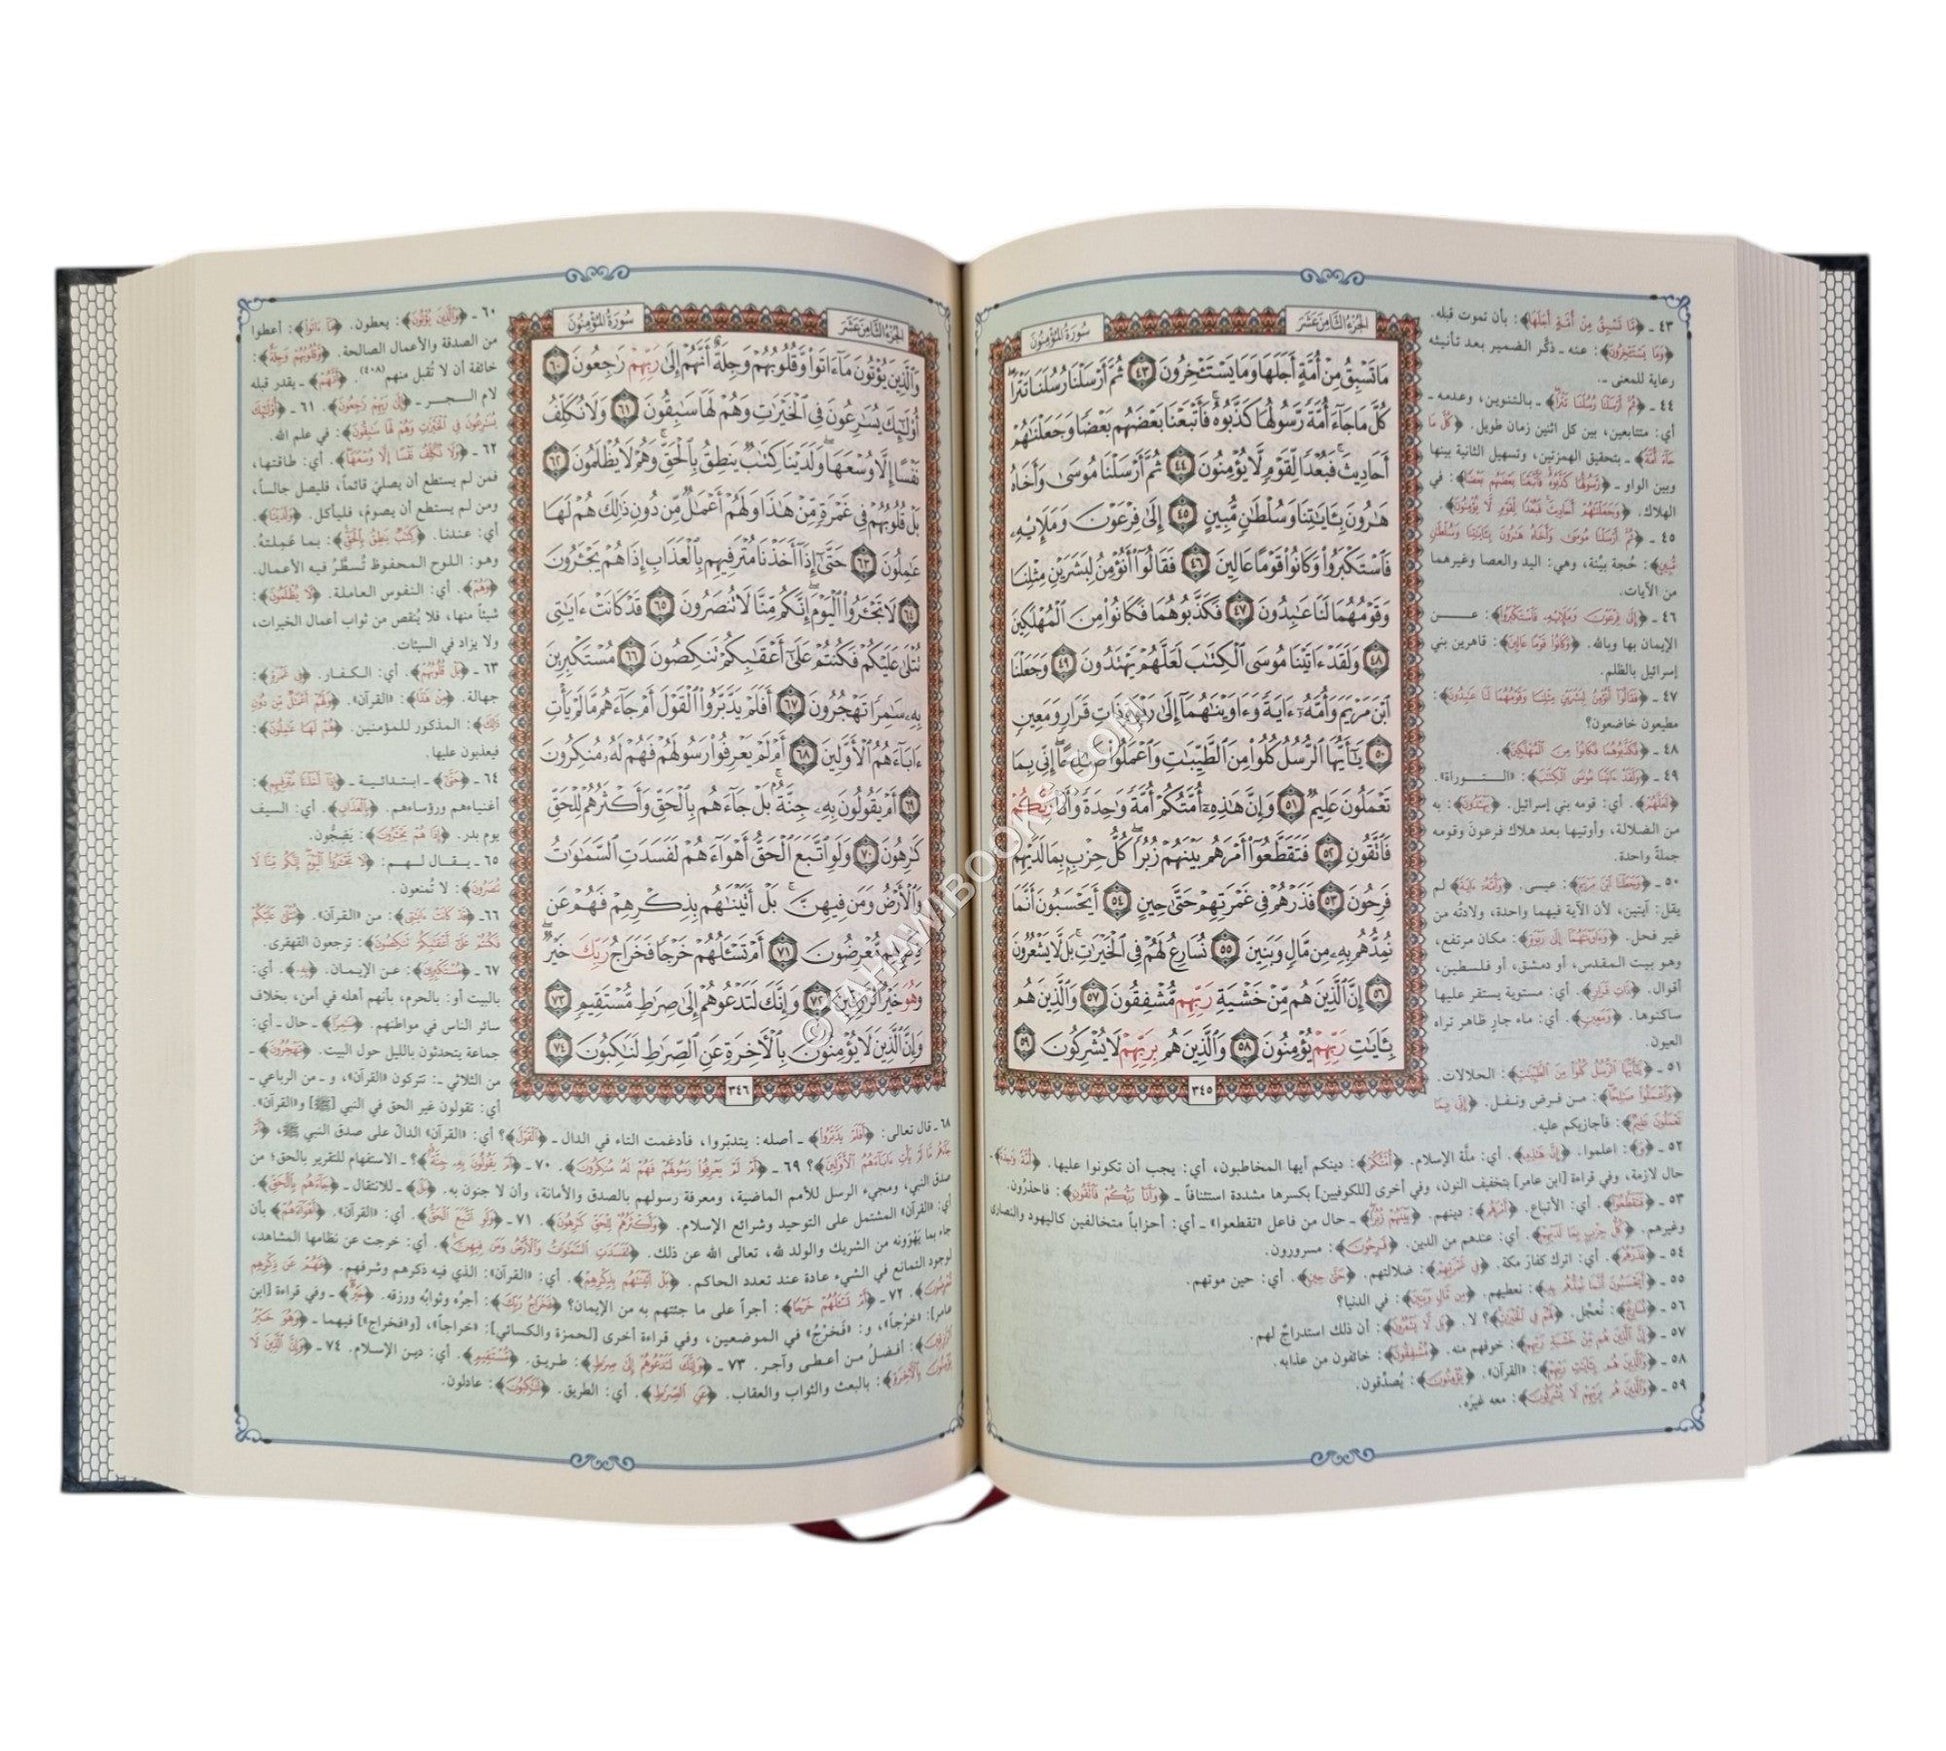 الجزء الثامن عشر
سورة المؤمنون
مَا تَسْبِقُ مِنْ أُمَّةٍ أَجَلَهَا وَمَا يَسْتَـْٔخِرُونَ ٤٣ ثُمَّ أَرْسَلْنَا رُسُلَنَا تَتْرَا
كُلَّ مَا جَآءَ أُمَّةً رَّسُولُهَا كَذَّبُوهُ فَأَتْبَعْنَا بَعْضَهُم بَعْضًا وَجَعَلْنَٰهُمْ
أَحَادِيثَ فَبُعْدًا لِّقَوْمٍ لَّا يُؤْمِنُونَ ٤٤ ثُمَّ أَرْسَلْنَا مُوسَىٰ وَأَخَاهُ
هَٰرُونَ بِـَٔايَٰتِنَا وَسُلْطَٰنٍ مُّبِينٍ ٤٥ إِلَىٰ فِرْعَوْنَ وَمَلَإِي۟هِۦ
فَٱسْتَكْبَرُوا۟ وَكَانُوا۟ قَوْمًا عَالِينَ ٤٦ فَقَالُوٓا۟ أَنُؤْمِنُ لِبَشَرَيْنِ مِثْلِنَا
وَقَوْمُهُمَا لَنَا عَٰبِدُونَ ٤٧ فَكَذَّبُوهُمَا فَكَانُوا۟ مِنَ ٱلْمُهْلَكِينَ
٤٨ وَلَقَدْ ءَاتَيْنَا مُوسَى ٱلْكِتَٰبَ لَعَلَّهُمْ يَهْتَدُونَ ٤٩ وَجَعَلْنَا
ٱبْنَ مَرْيَمَ وَأُمَّهُۥٓ ءَايَةً وَءَاوَيْنَٰهُمَآ إِلَىٰ رَبْوَةٍ ذَاتِ قَرَارٍ وَمَعِينٍ
٥٠ يَٰٓأَيُّهَا ٱلرُّسُلُ كُلُوا۟ مِنَ ٱلطَّيِّبَٰتِ وَٱعْمَلُوا۟ صَٰلِحًا إِنِّى بِمَا
تَعْمَلُونَ عَلِيمٌ ٥١ وَإِنَّ هَٰذِهِۦٓ أُمَّتُكُمْ أُمَّةً وَٰحِدَةً وَأَنَا۠ رَبُّكُمْ
فَٱتَّقُونِ ٥٢ فَتَقَطَّعُوٓا۟ أَمْرَهُم بَيْنَهُمْ زُبُرًا كُلُّ حِزْبٍۭ بِمَا لَدَيْهِمْ
فَرِحُونَ ٥٣ فَذَرْهُمْ فِى غَمْرَتِهِمْ حَتَّىٰ حِينٍ ٥٤ أَيَحْسَبُونَ أَنَّمَا
نُمِدُّهُم بِهِۦ مِن مَّالٍ وَبَنِينَ ٥٥ نُسَارِعُ لَهُمْ فِى ٱلْخَيْرَٰتِ بَل لَّا يَشْعُرُونَ
٥٦ إِنَّ ٱلَّذِينَ هُم مِّنْ خَشْيَةِ رَبِّهِم مُّشْفِقُونَ ٥٧ وَٱلَّذِينَ هُم
بِـَٔايَٰتِ رَبِّهِمْ يُؤْمِنُونَ ٥٨ وَٱلَّذِينَ هُم بِرَبِّهِمْ لَا يُشْرِكُونَ ٥٩
٣٤٥
٤٣ ـ ﴿مَا تَسْبِقُ مِنْ أُمَّةٍ أَجَلَهَا﴾: بأن تموت قبله.
﴿وَمَا يَسْتَـْٔخِرُونَ﴾: عنه ـ ذكّر الضمير بعد تأنيثه
رعاية للمعنى ـ.
٤٤ ـ ﴿ثُمَّ أَرْسَلْنَا رُسُلَنَا تَتْرَا﴾ ـ بالتنوين، وعدمه ـ
أي: متتابعين، بين كل اثنين زمان طويل. ﴿كُلَّ مَا
جَآءَ أُمَّةً﴾ ـ بتحقيق الهمزتين، وتسهيل الثانية بينها
وبين الواو ـ ﴿رَّسُولُهَا كَذَّبُوهُ فَأَتْبَعْنَا بَعْضَهُم بَعْضًا﴾: في
الهلاك. ﴿وَجَعَلْنَٰهُمْ أَحَادِيثَ فَبُعْدًا لِّقَوْمٍ لَّا يُؤْمِنُونَ﴾.
٤٥ ـ ﴿ثُمَّ أَرْسَلْنَا مُوسَىٰ وَأَخَاهُ هَٰرُونَ بِـَٔايَٰتِنَا وَسُلْطَٰنٍ
مُّبِينٍ﴾: حُجة بيِّنة، وهي: اليد والعصا وغيرهما
من الآيات.
٤٦ ـ ﴿إِلَىٰ فِرْعَوْنَ وَمَلَإِي۟هِۦ فَٱسْتَكْبَرُوا۟﴾: عن
الإيمان بها وبالله. ﴿وَكَانُوا۟ قَوْمًا عَالِينَ﴾: قاهرين بني
إسرائيل بالظلم.
٤٧ ـ ﴿فَقَالُوٓا۟ أَنُؤْمِنُ لِبَشَرَيْنِ مِثْلِنَا وَقَوْمُهُمَا لَنَا عَٰبِدُونَ﴾:
مطيعون خاضعون؟
٤٨ ـ ﴿فَكَذَّبُوهُمَا فَكَانُوا۟ مِنَ ٱلْمُهْلَكِينَ﴾.
٤٩ ـ ﴿وَلَقَدْ ءَاتَيْنَا مُوسَى ٱلْكِتَٰبَ﴾: «التوراة».
﴿لَعَلَّهُمْ﴾. أي: قومه بني إسرائيل. ﴿يَهْتَدُونَ﴾: به
من الضلالة، وأوتيها بعد هلاك فرعون وقومه
جملةً واحدة.
٥٠ ـ ﴿وَجَعَلْنَا ٱبْنَ مَرْيَمَ﴾: عيسى. ﴿وَأُمَّهُۥٓ ءَايَةً﴾ لم
يقل: آيتين، لأن الآية فيهما واحدة، ولادتُه من
غير فحل. ﴿وَءَاوَيْنَٰهُمَآ إِلَىٰ رَبْوَةٍ﴾: مكان مرتفع،
وهو بيت المقدس، أو دمشق، أو فلسطين،
أقوال. ﴿ذَاتِ قَرَارٍ﴾. أي: مستوية يستقر عليها
ساكنوها. ﴿وَمَعِينٍ﴾. أي: ماء جارٍ ظاهر تراه
العيون.
٥١ ـ ﴿يَٰٓأَيُّهَا ٱلرُّسُلُ كُلُوا۟ مِنَ ٱلطَّيِّبَٰتِ﴾: الحلالات.
﴿وَٱعْمَلُوا۟ صَٰلِحًا﴾: من فرض ونفل. ﴿إِنِّى بِمَا
تَعْمَلُونَ عَلِيمٌ﴾: فأجازيكم عليه.
٥٢ ـ ﴿وَ﴾: اعلموا. ﴿إِنَّ هَٰذِهِۦٓ﴾. أي: ملَّة الإسلام. ﴿أُمَّتُكُمْ﴾: دينكم أيها المخاطبون، أي: يجب أن تكونوا عليها. ﴿أُمَّةً وَٰحِدَةً﴾ ـ
حال لازمة، وفي قراءة [ابن عامر] بتخفيف النون، وفي أخرى [للكوفيين] بكسرها مشددة استئنافاً ـ ﴿وَأَنَا۠ رَبُّكُمْ فَٱتَّقُونِ﴾: فاحذرُون.
٥٣ ـ ﴿فَتَقَطَّعُوٓا۟﴾. أي: الأتباع. ﴿أَمْرَهُم﴾: دينهم. ﴿بَيْنَهُمْ زُبُرًا﴾ ـ حال من فاعل «تقطعوا» ـ أي: أحزاباً متخالفين كاليهود والنصارى
وغيرهم. ﴿كُلُّ حِزْبٍۭ بِمَا لَدَيْهِمْ﴾. أي: عندهم من الدين. ﴿فَرِحُونَ﴾: مسرورون.
٥٤ ـ ﴿فَذَرْهُمْ﴾. أي: اترك كفارَ مكة. ﴿فِى غَمْرَتِهِمْ﴾: ضلالتهم. ﴿حَتَّىٰ حِينٍ﴾. أي: حين موتهم.
٥٥ ـ ﴿أَيَحْسَبُونَ أَنَّمَا نُمِدُّهُم بِهِۦ﴾: نعطيهم. ﴿مِن مَّالٍ وَبَنِينَ﴾: في الدنيا؟
٥٦ ـ ﴿نُسَارِعُ﴾: نُعجِّل. ﴿لَهُمْ فِى ٱلْخَيْرَٰتِ﴾؟ لا. ﴿بَل لَّا يَشْعُرُونَ﴾: أن ذلك استدراجٌ لهم.
٥٧ ـ ﴿إِنَّ ٱلَّذِينَ هُم مِّنْ خَشْيَةِ رَبِّهِم﴾: خوفهم منه. ﴿مُّشْفِقُونَ﴾: خائفون من عذابه.
٥٨ ـ ﴿وَٱلَّذِينَ هُم بِـَٔايَٰتِ رَبِّهِمْ﴾: «القرآن». ﴿يُؤْمِنُونَ﴾: يُصدِّقون.
٥٩ ـ ﴿وَٱلَّذِينَ هُم بِرَبِّهِمْ لَا يُشْرِكُونَ﴾: معه غيرَه.
الجزء الثامن عشر
سورة المؤمنون
وَٱلَّذِينَ يُؤْتُونَ مَآ ءَاتَوا۟ وَّقُلُوبُهُمْ وَجِلَةٌ أَنَّهُمْ إِلَىٰ رَبِّهِمْ رَٰجِعُونَ ٦٠
أُو۟لَٰٓئِكَ يُسَٰرِعُونَ فِى ٱلْخَيْرَٰتِ وَهُمْ لَهَا سَٰبِقُونَ ٦١ وَلَا نُكَلِّفُ
نَفْسًا إِلَّا وُسْعَهَا وَلَدَيْنَا كِتَٰبٌ يَنطِقُ بِٱلْحَقِّ وَهُمْ لَا يُظْلَمُونَ ٦٢
بَلْ قُلُوبُهُمْ فِى غَمْرَةٍ مِّنْ هَٰذَا وَلَهُمْ أَعْمَٰلٌ مِّن دُونِ ذَٰلِكَ هُمْ لَهَا
عَٰمِلُونَ ٦٣ حَتَّىٰٓ إِذَآ أَخَذْنَا مُتْرَفِيهِم بِٱلْعَذَابِ إِذَا هُمْ يَجْـَٔرُونَ
٦٤ لَا تَجْـَٔرُوا۟ ٱلْيَوْمَ إِنَّكُم مِّنَّا لَا تُنصَرُونَ ٦٥ قَدْ كَانَتْ ءَايَٰتِى
تُتْلَىٰ عَلَيْكُمْ فَكُنتُمْ عَلَىٰٓ أَعْقَٰبِكُمْ تَنكِصُونَ ٦٦ مُسْتَكْبِرِينَ
بِهِۦ سَٰمِرًا تَهْجُرُونَ ٦٧ أَفَلَمْ يَدَّبَّرُوا۟ ٱلْقَوْلَ أَمْ جَآءَهُم مَّا لَمْ يَأْتِ
ءَابَآءَهُمُ ٱلْأَوَّلِينَ ٦٨ أَمْ لَمْ يَعْرِفُوا۟ رَسُولَهُمْ فَهُمْ لَهُۥ مُنكِرُونَ
٦٩ أَمْ يَقُولُونَ بِهِۦ جِنَّةٌۢ بَلْ جَآءَهُم بِٱلْحَقِّ وَأَكْثَرُهُمْ لِلْحَقِّ
كَٰرِهُونَ ٧٠ وَلَوِ ٱتَّبَعَ ٱلْحَقُّ أَهْوَآءَهُمْ لَفَسَدَتِ ٱلسَّمَٰوَٰتُ
وَٱلْأَرْضُ وَمَن فِيهِنَّ بَلْ أَتَيْنَٰهُم بِذِكْرِهِمْ فَهُمْ عَن
ذِكْرِهِم مُّعْرِضُونَ ٧١ أَمْ تَسْـَٔلُهُمْ خَرْجًا فَخَرَاجُ رَبِّكَ خَيْرٌ
وَهُوَ خَيْرُ ٱلرَّٰزِقِينَ ٧٢ وَإِنَّكَ لَتَدْعُوهُمْ إِلَىٰ صِرَٰطٍ مُّسْتَقِيمٍ ٧٣
وَإِنَّ ٱلَّذِينَ لَا يُؤْمِنُونَ بِٱلْأَخِرَةِ عَنِ ٱلصِّرَٰطِ لَنَٰكِبُونَ ٧٤
٣٤٦
٦٠ ـ ﴿وَٱلَّذِينَ يُؤْتُونَ﴾: يعطون. ﴿مَآ ءَاتَوا۟﴾: أعطوا
من الصدقة والأعمال الصالحة. ﴿وَّقُلُوبُهُمْ وَجِلَةٌ﴾:
خائفة أن لا تُقبل منهم (٤٠٨). ﴿أَنَّهُمْ﴾ ـ يقدر قبله
لام الجر ـ ﴿إِلَىٰ رَبِّهِمْ رَٰجِعُونَ﴾. ٦١ ـ ﴿أُو۟لَٰٓئِكَ
يُسَٰرِعُونَ فِى ٱلْخَيْرَٰتِ وَهُمْ لَهَا سَٰبِقُونَ﴾: في علم الله.
٦٢ ـ ﴿وَلَا نُكَلِّفُ نَفْسًا إِلَّا وُسْعَهَا﴾. أي: طاقتها،
فمن لم يستطع أن يصليَ قائماً، فليصل جالساً،
ومن لم يستطع أن يصومَ، فليأكل. ﴿وَلَدَيْنَا﴾.
أي: عندنا. ﴿كِتَٰبٌ يَنطِقُ بِٱلْحَقِّ﴾: بما عَمِلتهُ.
وهو: اللوح المحفوظ تُسطَّرُ فيه الأعمال.
﴿وَهُمْ﴾. أي: النفوس العاملة. ﴿لَا يُظْلَمُونَ﴾:
شيئاً منها، فلا يُنقص من ثواب أعمال الخيرات،
ولا يزاد في السيئات.
٦٣ ـ ﴿بَلْ قُلُوبُهُمْ﴾. أي: الكفار. ﴿فِى غَمْرَةٍ﴾:
جهالة. ﴿مِّنْ هَٰذَا﴾: «القرآن». ﴿وَلَهُمْ أَعْمَٰلٌ مِّن دُونِ
ذَٰلِكَ﴾: المذكور للمؤمنين. ﴿هُمْ لَهَا عَٰمِلُونَ﴾:
فيعذبون عليها.
٦٤ ـ ﴿حَتَّىٰٓ﴾ ـ ابتدائية ـ ﴿إِذَآ أَخَذْنَا مُتْرَفِيهِم﴾:
أغنياءهم ورؤساءهم. ﴿بِٱلْعَذَابِ﴾. أي: السيف
يوم بدر. ﴿إِذَا هُمْ يَجْـَٔرُونَ﴾: يَضِجُّون.
٦٥ ـ يقال لهم: ﴿لَا تَجْـَٔرُوا۟ ٱلْيَوْمَ إِنَّكُم مِّنَّا لَا
تُنصَرُونَ﴾: لا تُمنعون.
٦٦ ـ ﴿قَدْ كَانَتْ ءَايَٰتِى﴾: من «القرآن». ﴿تُتْلَىٰ عَلَيْكُمْ
فَكُنتُمْ عَلَىٰٓ أَعْقَٰبِكُمْ تَنكِصُونَ﴾: ترجعون القهقرى.
٦٧ ـ ﴿مُسْتَكْبِرِينَ﴾: عن الإيمان. ﴿بِهِۦ﴾. أي:
بالبيت أو: بالحرم، بأنهم أهله في أمن، بخلاف
سائر الناس في مواطنهم. ﴿سَٰمِرًا﴾ ـ حال ـ أي:
جماعة يتحدثون بالليل حول البيت. ﴿تَهْجُرُونَ﴾ ـ
من الثلاثي ـ: تتركون «القرآن»، و ـ من الرباعي ـ
أي: تقولون غير الحق في النبي [ﷺ] و«القرآن».
٦٨ ـ قال تعالى: ﴿أَفَلَمْ يَدَّبَّرُوا۟﴾ ـ أصله: يتدبّروا، فأدغمت التاء في الدال ـ ﴿ٱلْقَوْلَ﴾؟ أي: «القرآن» الدالّ على صدق النبي ﷺ، ﴿أَمْ
جَآءَهُم مَّا لَمْ يَأْتِ ءَابَآءَهُمُ ٱلْأَوَّلِينَ﴾؟ ٦٩ ـ ﴿أَمْ لَمْ يَعْرِفُوا۟ رَسُولَهُمْ فَهُمْ لَهُۥ مُنكِرُونَ﴾. ٧٠ ـ ﴿أَمْ يَقُولُونَ بِهِۦ جِنَّةٌ﴾؟ ـ الاستفهام للتقرير بالحق؛ من
صدق النبي، ومجيء الرسل للأمم الماضية، ومعرفة رسولهم بالصدق والأمانة، وأن لا جنون به. ﴿بَلْ﴾ ـ للانتقال ـ ﴿جَآءَهُم بِٱلْحَقِّ﴾.
أي: «القرآن» المشتمل على التوحيد وشرائع الإسلام. ﴿وَأَكْثَرُهُمْ لِلْحَقِّ كَٰرِهُونَ﴾. ٧١ ـ ﴿وَلَوِ ٱتَّبَعَ ٱلْحَقُّ﴾. أي: «القرآن». ﴿أَهْوَآءَهُمْ﴾ بأن
جاء بما يَهْوَوْنه من الشريك والولد لله، تعالى الله عن ذلك. ﴿لَفَسَدَتِ ٱلسَّمَٰوَٰتُ وَٱلْأَرْضُ وَمَن فِيهِنَّ﴾. أي: خرجت عن نظامها المشاهد،
لوجود التمانع في الشيء عادة عند تعدد الحاكم. ﴿بَلْ أَتَيْنَٰهُم بِذِكْرِهِمْ﴾. أي: «القرآن»: الذي فيه ذكرهم وشرفهم. ﴿فَهُمْ عَن ذِكْرِهِم
مُّعْرِضُونَ﴾. ٧٢ ـ ﴿أَمْ تَسْـَٔلُهُمْ خَرْجًا﴾: أجراً على ما جئتهم به من الإيمان؟ ﴿فَخَرَاجُ رَبِّكَ﴾: أجرُه وثوابُه ورزقه. ﴿خَيْرٌ﴾ ـ وفي قراءة [ابن
عامر]: «خرْجاً»، و: «فَخَرْجُ» في الموضعين، وفي قراءة أخرى [لحمزة والكسائي]: «خراجاً»، [و«فخراج»] فيهما ـ ﴿وَهُوَ خَيْرُ
ٱلرَّٰزِقِينَ﴾: أفضلُ من أعطى وآجر. ٧٣ ـ ﴿وَإِنَّكَ لَتَدْعُوهُمْ إِلَىٰ صِرَٰطٍ﴾: طريق. ﴿مُّسْتَقِيمٍ﴾. أي: دين الإسلام. ٧٤ ـ ﴿وَإِنَّ ٱلَّذِينَ لَا
يُؤْمِنُونَ بِٱلْأَخِرَةِ﴾: بالبعث والثواب والعقاب. ﴿عَنِ ٱلصِّرَٰطِ﴾. أي: الطريق. ﴿لَنَٰكِبُونَ﴾: عادلون.